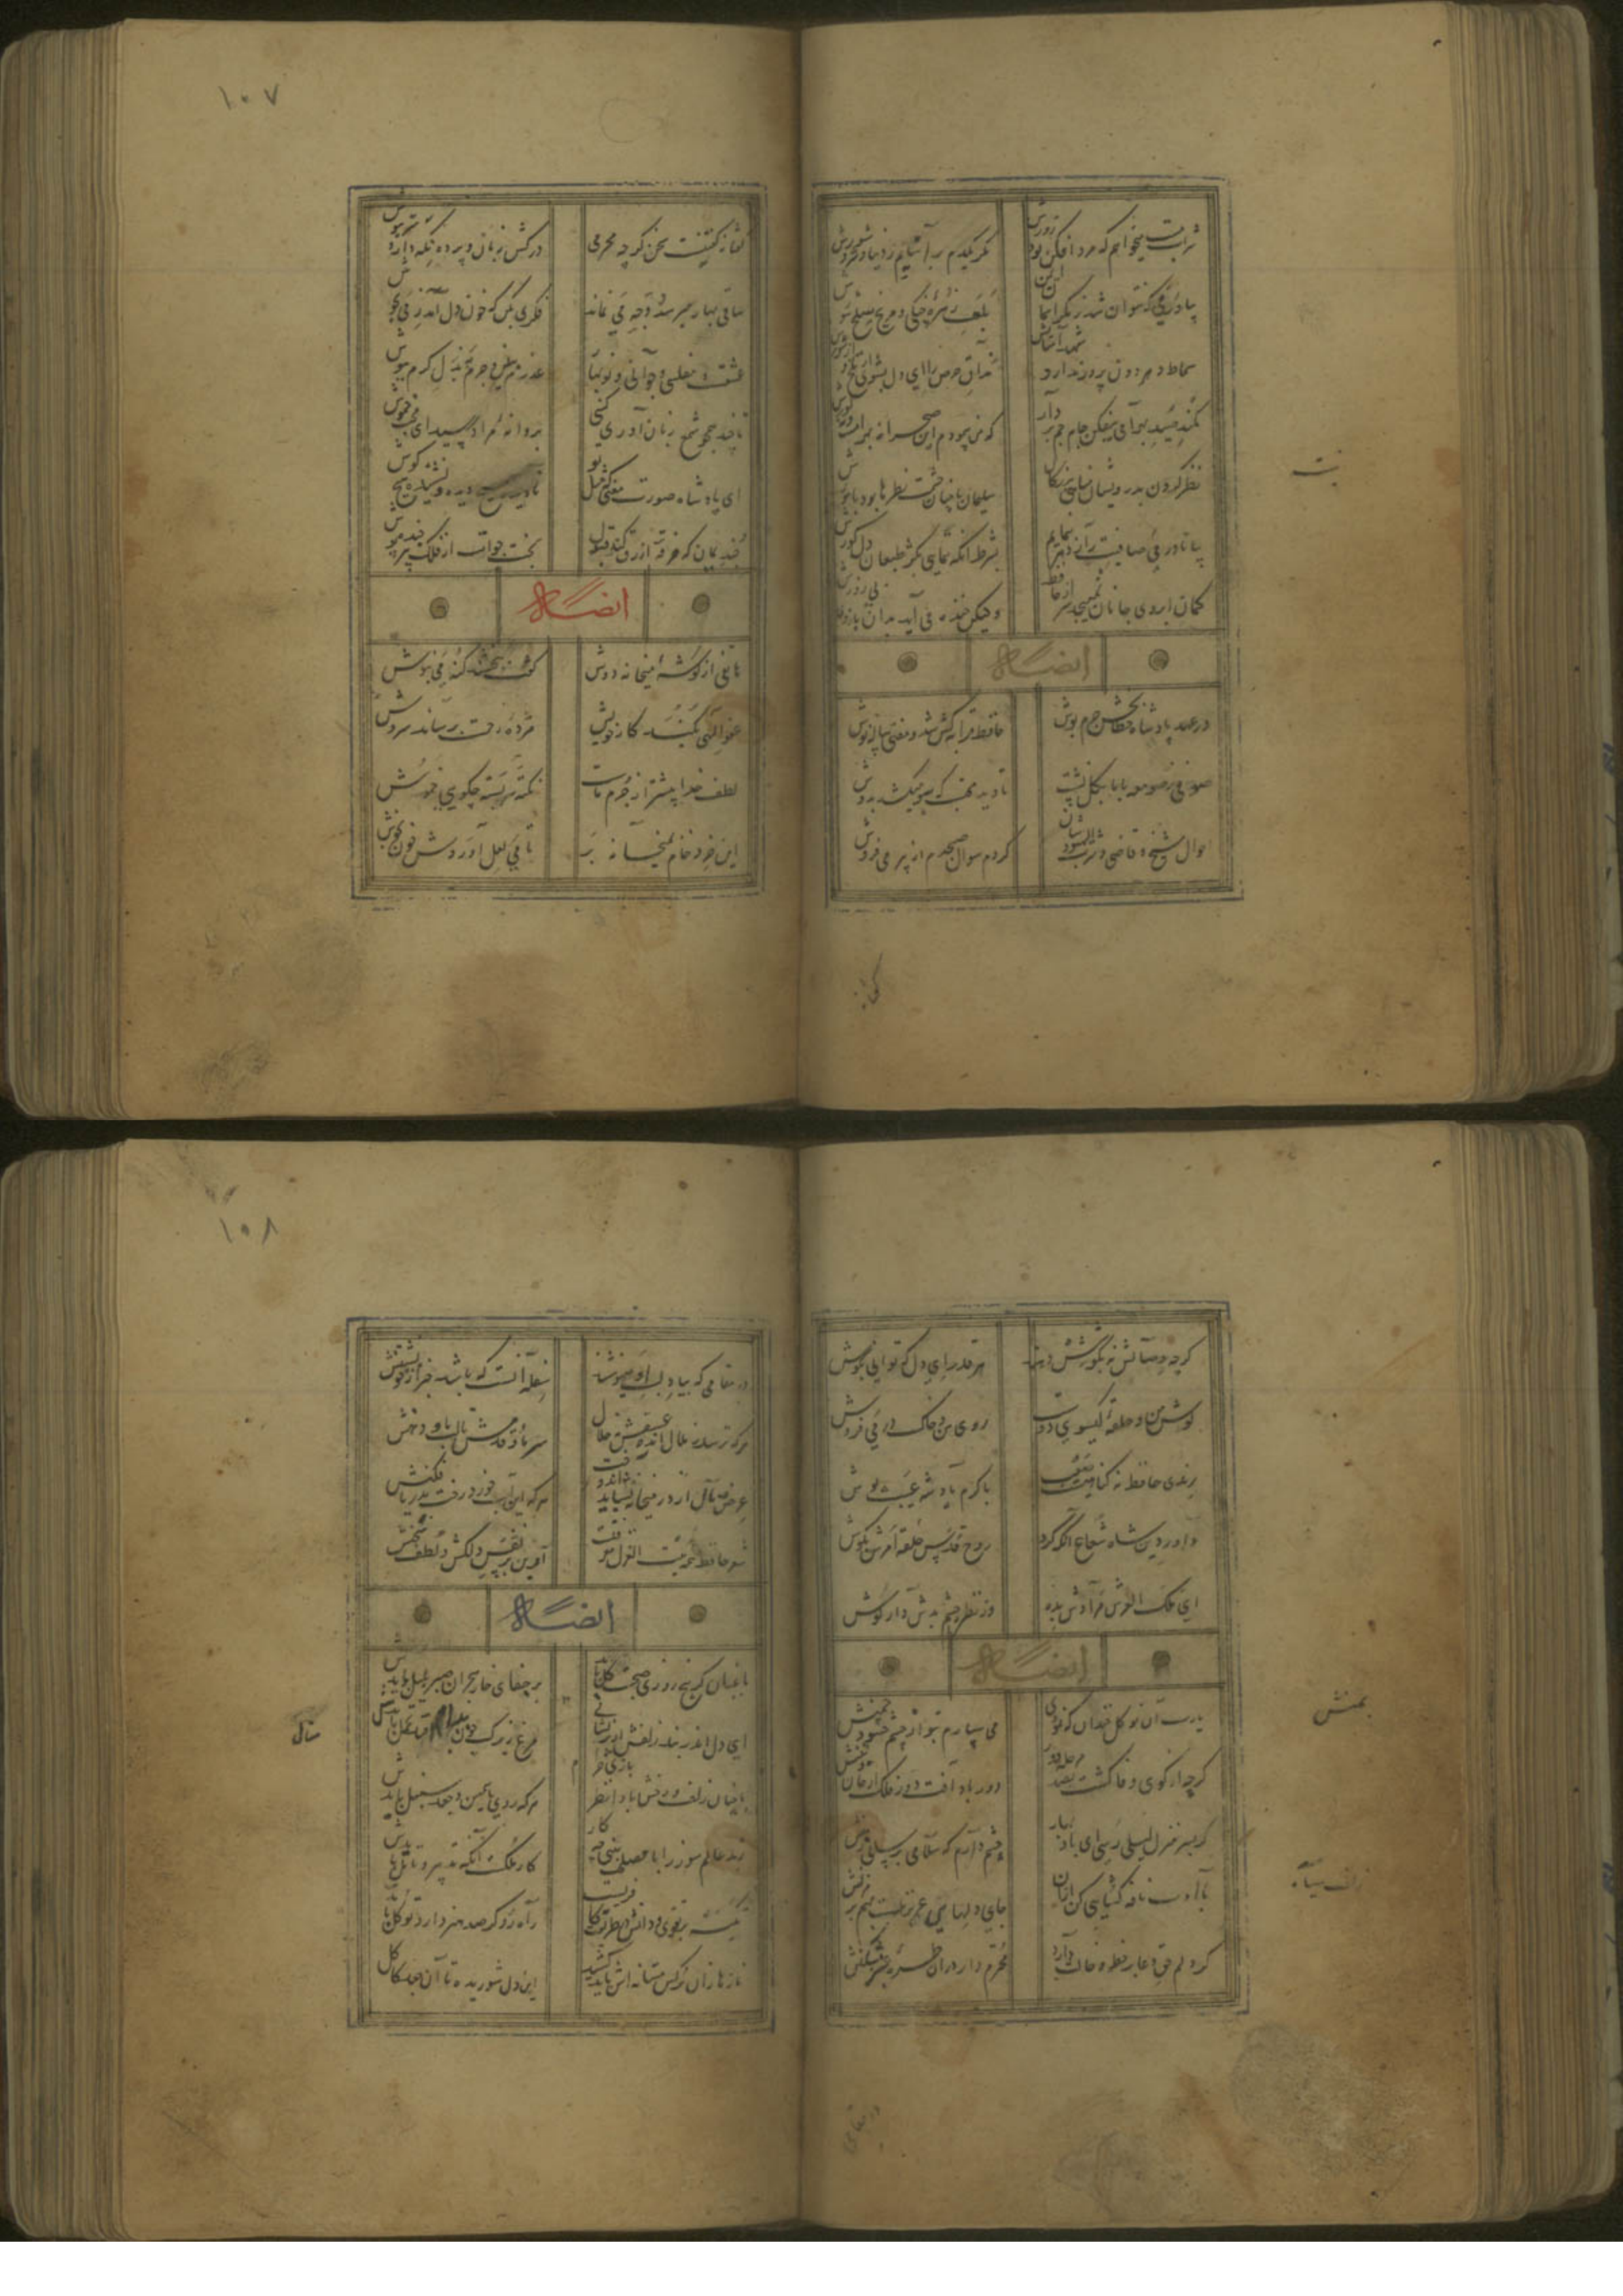 شراب تلخ میخواهم که مرد افکن بود زورش
مگر یکدم برآسایم ز دنیا و شر و شورش
بیاور می که نتوان شد ز مکر آسمان ایمن
بلعب زهره چنگی و مریخ سلحشورش
سماط دهر دون پرور ندارد شهد آسایش
مذاق حرص و آز ای دل بشوی از تلخ و از شورش
کمند صید بهرامی بیفکن جام جم بردار
که من پیمودم این صحرا نه بهرامست و نه گورش
نظر کردن بدرویشان منافی بزرگی نیست
سلیمان با چنان حشمت نظرها بود با مورش
بیا تا در می صافیت راز دهر بنمایم
بشرط آنکه ننمایی بکژ طبعان دل کورش
کمان ابروی جانان نمیپیچد سر از حافظ
ولیکن خنده می آید بدان بازوی بی زورش
ایضاً له
در عهد پادشاه خطابخش جرم پوش
حافظ قرابه کش شد و مفتی پیاله نوش
صوفی ز صومعه با پای گل نشست
تا دید محتسب که سبو میکشد بدوش
احوال شیخ و قاضی و شرب الیهودشان
کردم سوال صبحدم از پیر می فروش
گفتا نه گفتنیست سخن گرچه محرمی
درکش زبان و پرده نگه دار و می بنوش
ساقی بهار میرسد و وجه می نماند
فکری بکن که خون دل آمد ز غم بجوش
عشقست و مفلسی و جوانی و نوبهار
عذرم پذیر و جرم بذیل کرم بپوش
تا چند همچو شمع زبان آوری کنی
پروانه مراد رسید ای محب خموش
ای پادشاه صورت و معنی که مثل تو
نادیده هیچ دیده و نشنیده هیچ گوش
چندان بمان که خرقه ازرق کند قبول
بخت جوانت از فلک پیر ژنده پوش
ایضاً له
هاتفی از گوشه میخانه دوش
گفت ببخشند گنه می بنوش
عفو الهی بکند کار خویش
مژده رحمت برساند سروش
لطف خدا بیشتر از جرم ماست
نکته سربسته چگویی خموش
این خرد خام بمیخانه بر
تا می لعل آوردش خون بجوش
۱۰۷
گرچه وصالش نه بکوشش دهند
هر قدر ای دل که توانی بکوش
گوش من و حلقه گیسوی دوست
روی من و خاک در می فروش
رندی حافظ نه گناهیست صعب
با کرم پادشه عیب پوش
داور دین شاه شجاع آنکه کرد
روح قدس حلقه امرش بگوش
ای ملک العرش مرادش بده
وز نظر چشم بدش دار گوش
ایضاً له
یارب آن نو گل خندان که تو دی
می سپارم بتو از چشم حسود چمنش
گرچه از کوی وفا گشت بصد مرحله دور
دور باد آفت دور فلک از جان و تنش
گر بسر منزل لیلی رسی ای باد بهار
چشم دارم که سلامی برسانی ز منش
بادب نافه گشایی کن از آن
جای دلهای عزیزست بهم بر مزنش
گر دلم حق وفا بر خط و خالت دارد
محترم دار در آن طره عنبر شکنش
بمنش
زلف سیاه
در مقامی که بیاد لب او می نوشند
سفله آنست که باشد خبر از خویشتنش
هر که ترسد ز ملال انده عشقش نه حلال
سر ما و قدمش یا لب ما و دهنش
عرض و مال از در میخانه نشاید اندوخت
هر که این آب خورد رخت بدریا فکنش
شعر حافظ همه بیت الغزل معرفت
آفرین بر نفس دلکش و لطف سخنش
ایضاً له
باغبان گر پنج روزی صحبت گل بایدش
بر جفای خار هجران صبر بلبل بایدش
ای دل اندر بند زلفش از پریشانی
مرغ زیرک چون بدام افتد تحمل بایدش
با چنان زلف و رخش بادا نظر بازی حرام
هر که روی یاسمین و جعد سنبل بایدش
رند عالم سوز را با مصلحت بینی چه کار
کار ملکست آنکه تدبیر و تامل بایدش
تکیه بر تقوی و دانش در طریقت کافریست
راه رو گر صد هنر دارد توکل بایدش
نازها زان نرگس مستانه اش باید کشید
این دل شوریده تا آن جعد کاکل
منال
۱۰۸